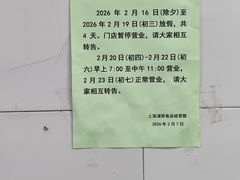 2026 年 2 月 16 日(除夕)至
2026 年 2 月 19 日(初三)放假，共
4 天。门店暂停营业，请大家相互
转告。
2 月 20 日(初四)-2 月 22 日(初
六)早上 7:00 至中午 11:00 营业，
2 月 23 日(初七)正常营业，请大
家相互转告。
2026 年 2 月 7 日